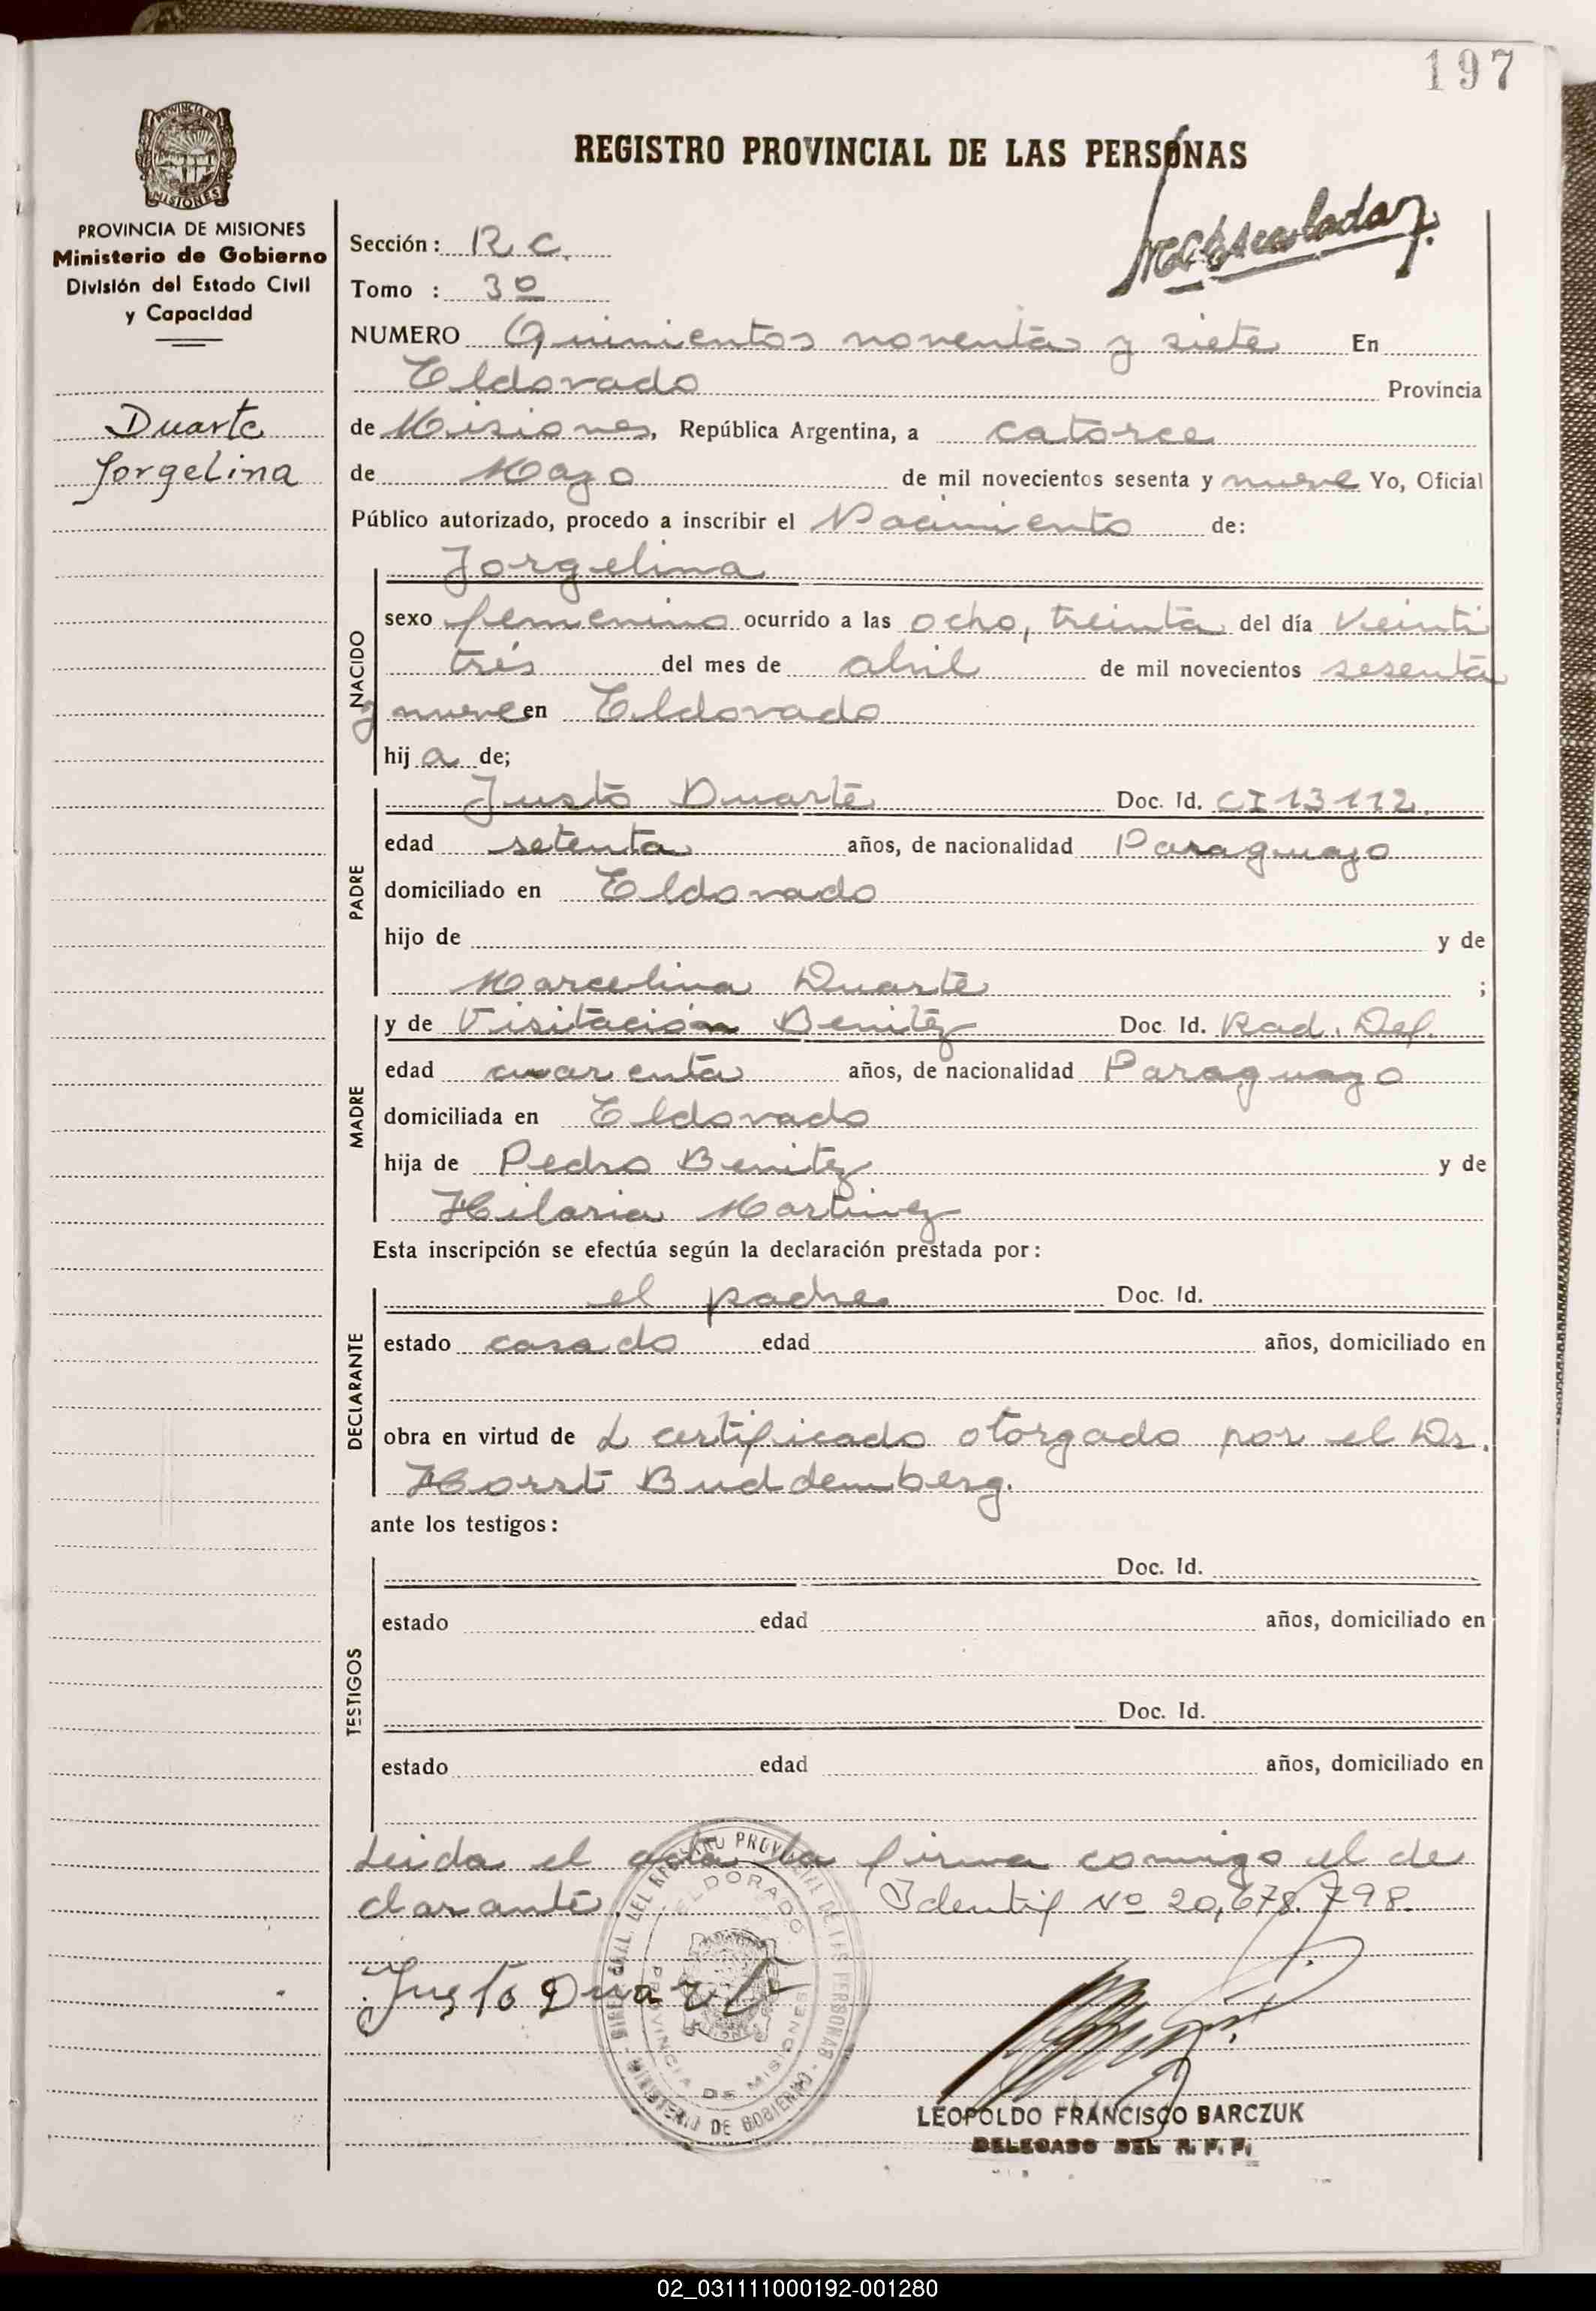 197
PROVINCIA DE MISIONES
Ministerio de Gobierno
División del Estado Civil
y Capacidad
Duarte
Jorgelina
REGISTRO PROVINCIAL DE LAS PERSONAS
Sección: R.C.
Tomo : 3º
NUMERO Quinientos noventa y siete En
Eldorado Provincia
de Misiones, República Argentina, a catorce
de Mayo de mil novecientos sesenta y nueve Yo, Oficial
Público autorizado, procedo a inscribir el Nacimiento de:
NACIDO
Jorgelina
sexo femenino ocurrido a las ocho, treinta del día veinti
trés del mes de abril de mil novecientos sesenta
y nueve en Eldorado
hija de;
PADRE
Justo Duarte Doc. Id. CI 13112.
edad setenta años, de nacionalidad Paraguayo
domiciliado en Eldorado
hijo de y de
Marcelina Duarte ;
MADRE
y de Visitación Benitez Doc. Id. Rad. Def.
edad cuarenta años, de nacionalidad Paraguayo
domiciliada en Eldorado
hija de Pedro Benitez y de
Hilaria Martinez
Esta inscripción se efectúa según la declaración prestada por:
DECLARANTE
el padre Doc. Id.
estado casado edad años, domiciliado en
obra en virtud de L certificado otorgado por el Dr.
Horst Buddemberg.
ante los testigos:
TESTIGOS
Doc. Id.
estado edad años, domiciliado en
Doc. Id.
estado edad años, domiciliado en
Leida el acta la firma comigo el de
clarante. Identif Nº 20,678.798.
Justo Duarte
ELDORADO
PROVINCIA DE MISIONES
MINISTERIO DE GOBIERNO
LEOPOLDO FRANCISCO BARCZUK
DELEGADO DEL R. P. P.
02_031111000192-001280